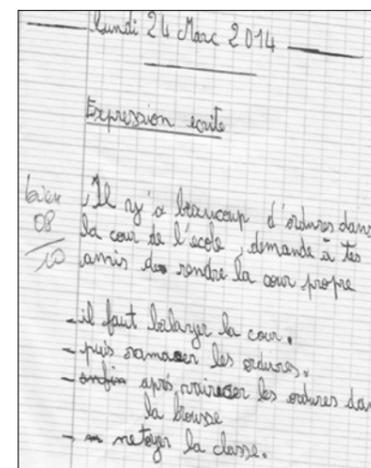 Lundi 24 Marc 2014
Expression ecrite
bien
08
10
Il ny'a beaucoup d'ordures dans
la cour de l'ecole, demande à tes
amis de rendre la cour propre
- il faut balayer la cour.
- puis ramasser les ordures.
- enfin après les ordures dan
la blouse
- netoyer la classe.